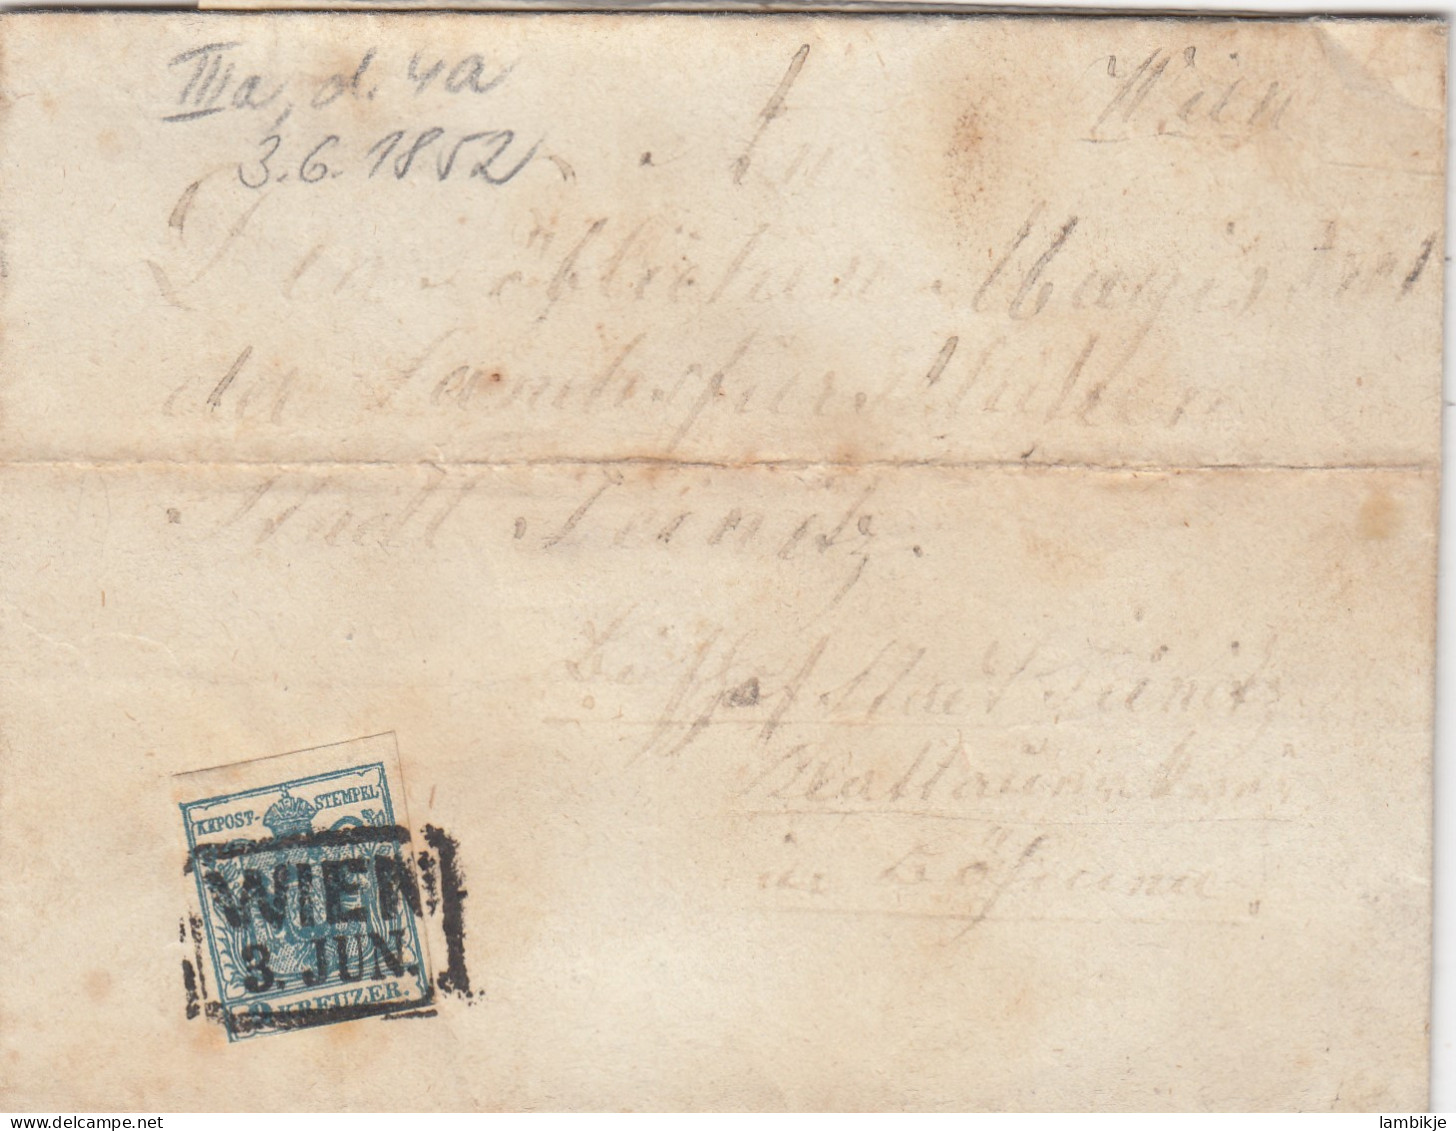 IIIa, d. 4a
3.6.1852
Wien
An
Den löblichen Magistrat
der Landesfürstlichen
Stadt Teinitz.
Stadt Teinitz
in Böhmen
KKPOST-STEMPEL
WIEN
3. JUN.
9 KREUZER.
delcampe.net
lambikje